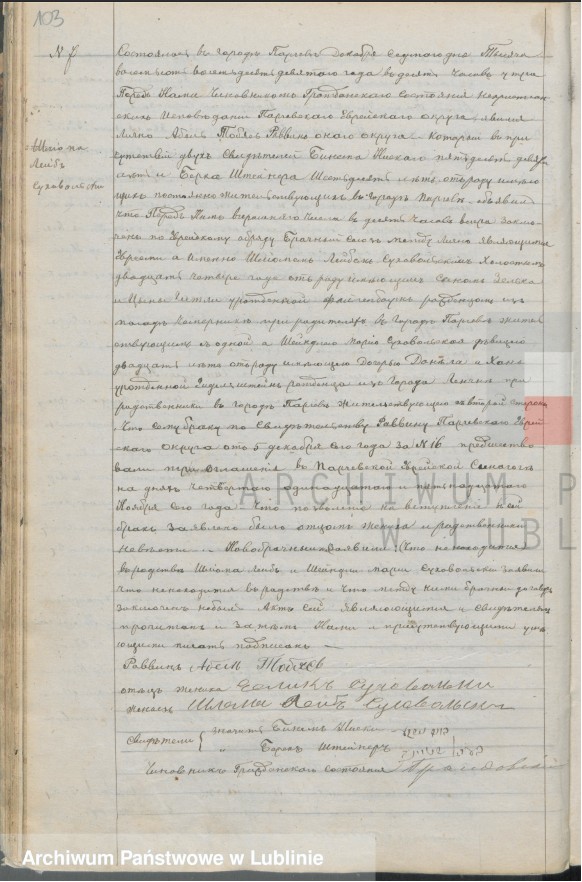 103
N 7
Шлiома
Лейбъ
Суховольски
Состоялось въ городѣ Парчевѣ Декабря Седьмого дня Тысяча
восемьсотъ восемьдесятъ девятого года въ десять часовъ утра
Передъ Нами Чиновникомъ Гражданского Состоянiя Нехристiан
скихъ Исповѣданiй Парчевского Еврейского округа явился
Лично Абель Тобiясъ Раввинъ сего округа Который въ при
сутствiи двухъ Свидѣтелей Биньяма пятьдесятъ девяти
лѣтъ и Берка Штейнера Шестьдесятъ лѣтъ отъ роду имѣю
щихъ постоянно жительствующихъ въ городѣ Парчевѣ объявилъ
что Передъ Нимъ вчерашнего числа въ десять часовъ вечера заклю
ченъ по Еврейскому обряду Брачный Союзъ между Лично являющимися
Евреями а именно Шлiомомъ Лейбомъ Суховольскимъ Холостымъ
двадцать четыре года отъ роду имѣющимъ Сыномъ Зелика
и урожденной рожденнымъ въ
при родителяхъ въ городѣ Парчевѣ житель
ствующимъ съ одной а Шейндлею Марiею Суховольскою дѣвицею
двадцать лѣтъ отъ роду имѣющею Дочерью Данiла и Ханы
урожденной рожденною въ Городѣ при
родственникѣ въ городѣ Парчевѣ жительствующею съ второй стороны
Что сему браку по Свидѣтельству Раввина Парчевского Еврей
ского округа отъ 5 декабря сего года за N 16 предшество
вали три оглашенiя въ Парчевской Еврейской Синагогѣ
на дняхъ четвертого одинадцатого и
Ноября сего года что позволенiе на вступленiе въ сей
бракъ заявлено было отцомъ жениха и родственникомъ
невѣсты и Новобрачные заявили что не находятся
въ родствѣ Шлiома Лейбъ и Шейндля Марiя Суховольски заявили
что не находятся въ родствѣ и что между ними брачный договоръ
заключенъ небылъ Актъ сей являющимися и свидѣтелямъ
прочитанъ и за тѣмъ Нами и присутствующими умѣ
ющими писать подписанъ
Раввинъ Абель Тобiясъ
отецъ жениха Зеликъ Суховольски
женихъ Шлома Лейбъ Суховольски
Свидѣтели { значитъ Биньямъ
" Берекъ Штейнеръ
Чиновникъ Гражданского состоянiя
ARCHIWUM P
W LUBL
Archiwum Państwowe w Lublinie